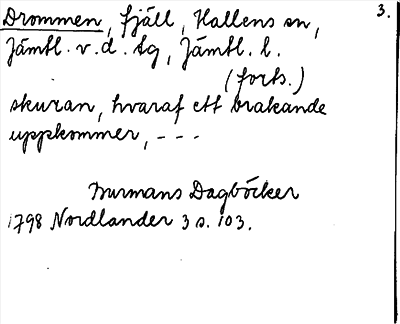 Drommen, fjäll, Hallens sn, 3.
Jämtl. v. d. tg, Jämtl. l.
(forts.)
skuran, hvaraf ett brakande
uppkommer, - - -
Burmans Dagböcker
1798 Nordlander 3 s. 103.